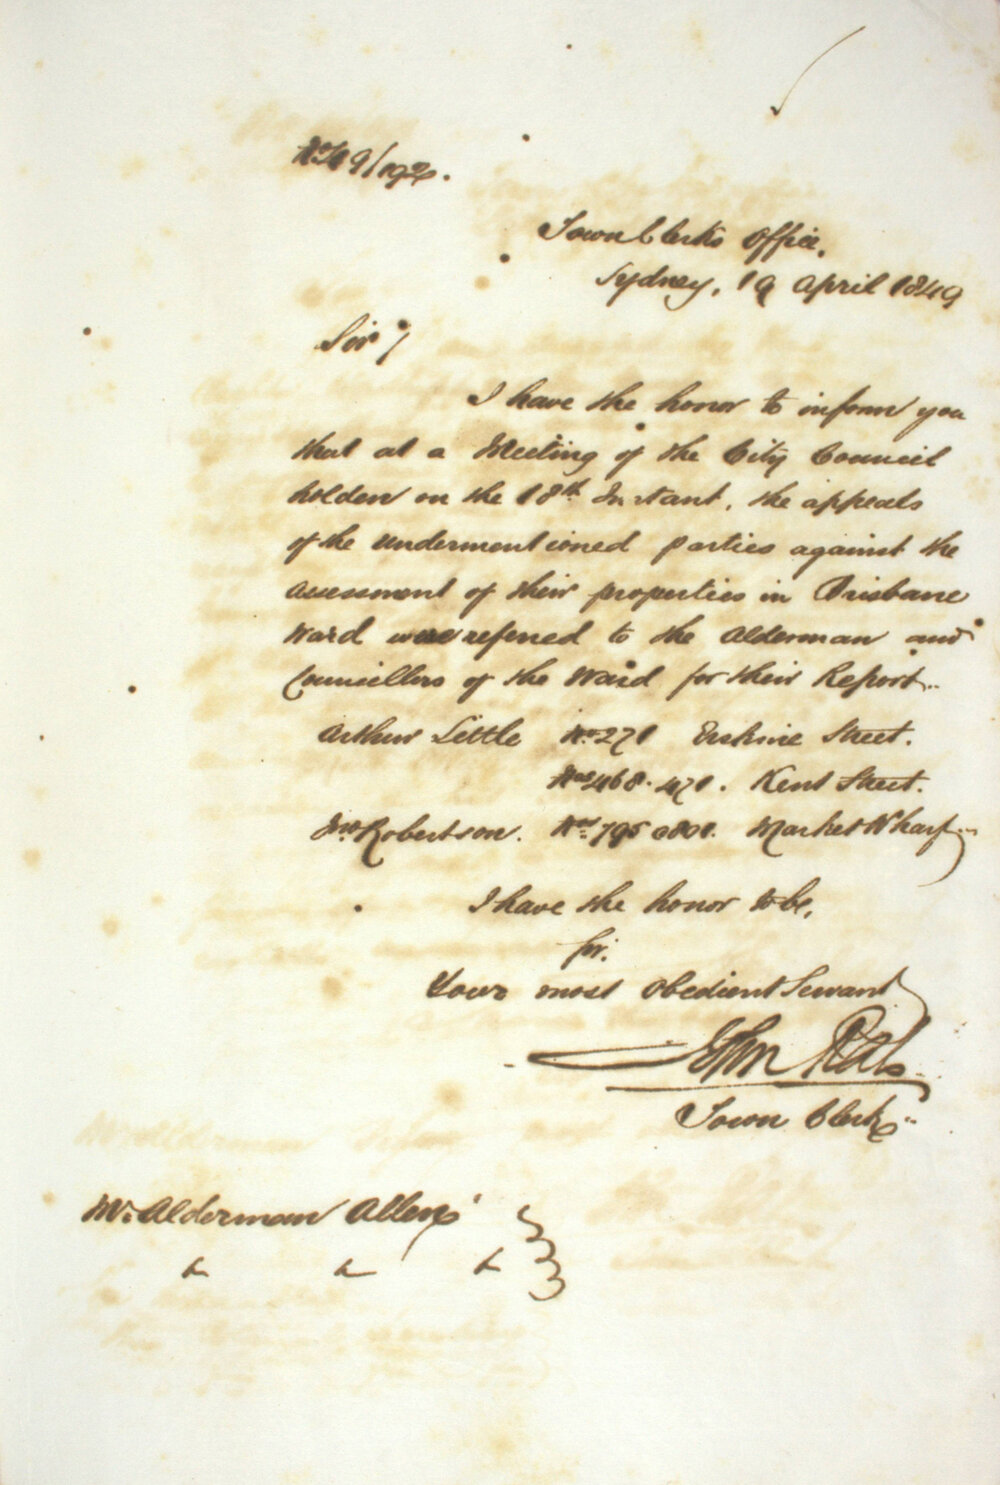 No 49/192.
Town Clerk's Office.
Sydney, 19 April 1849
Sir /
I have the honor to inform you
that at a Meeting of the City Council
holden on the 18th Instant, the appeals
of the undermentioned parties against the
assessment of their properties in Brisbane
Ward were referred to the Alderman and
Councillors of the Ward for their Report.
Arthur Little No 271 Erskine Street.
Nos 468. 471. Kent Street.
Jno Robertson. Nos 795 Market Wharf
I have the honor to be,
Sir.
Your most obedient Servant
John Rae
Town Clerk
Mr. Alderman Allen